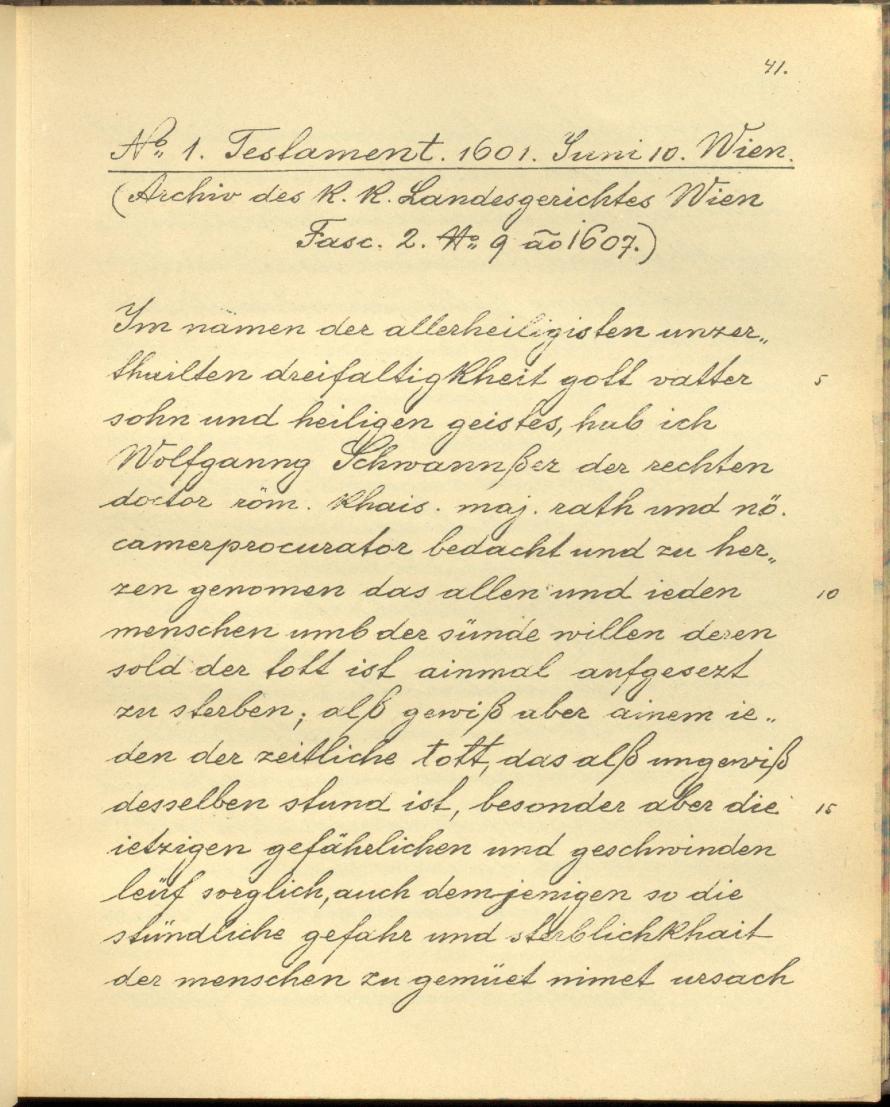 41.
No. 1. Testament. 1601. Juni 10. Wien.
(Archiv des K. K. Landesgerichtes Wien
Fasc. 2. No. 9 ao 1607.)
Im namen der allerheiligisten unzer„
thailten dreifaltigkheit gott vatter 5
sohn und heiligen geistes, hab ich
Wolfganng Schwannßer der rechten
doctor röm. khais. maj. rath und nö.
camerprocurator bedacht und zu her„
zen genomen das allen und ieden 10
menschen umb der sünde willen deren
sold der tott ist ainmal aufgesezt
zu sterben; alß gewiß aber ainem ie„
den der zeitliche tott, das alß ungewiß
desselben stund ist, besonder aber die 15
ietzigen gefährlichen und geschwinden
leüf sorglich, auch demjenigen so die
stündliche gefahr und sterblichkhait
der menschen zu gemüet nimet ursach